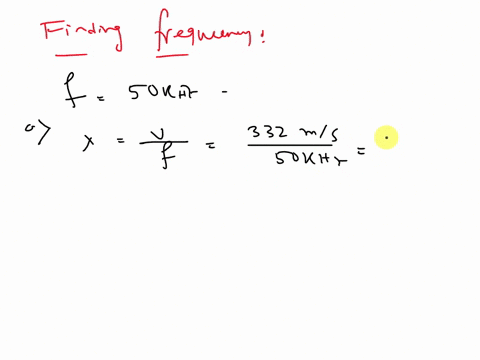 Finding frequency:
f = 50KHz -
a> λ = v/f = 332 m/s / 50KHz =